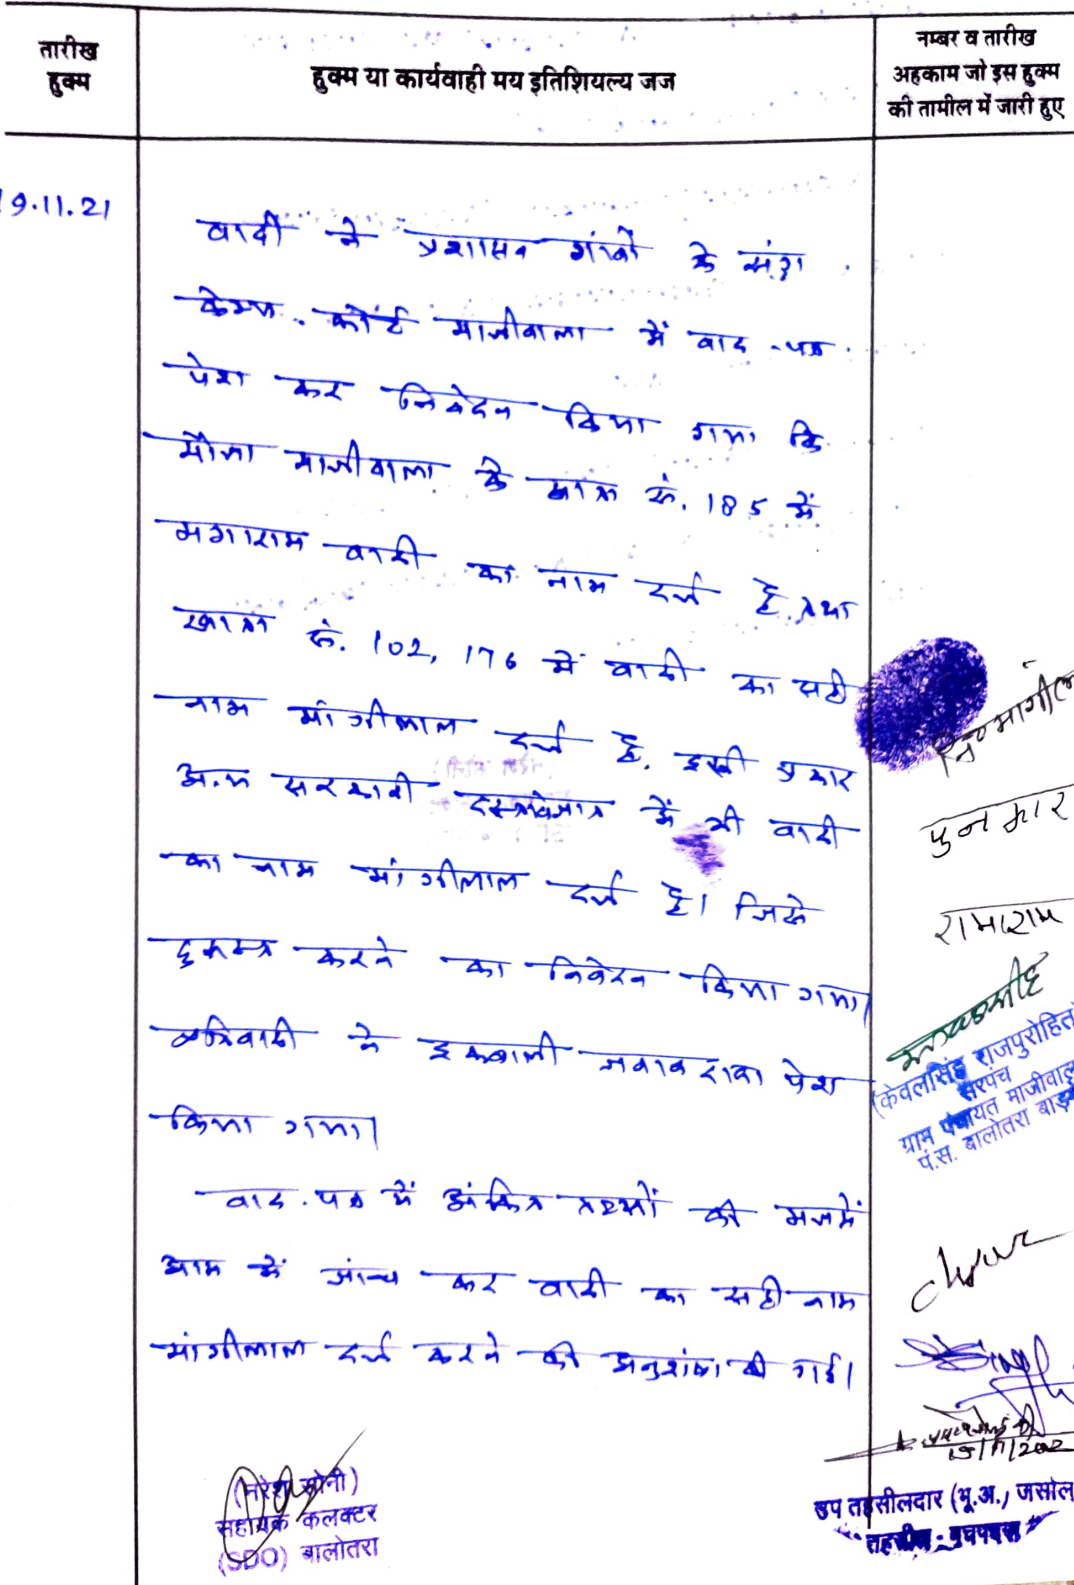 तारीख
हुक्म
हुक्म या कार्यवाही मय इतिशियल्य जज
नम्बर व तारीख
अहकाम जो इस हुक्म
की तामील में जारी हुए
19.11.21
वादी ने प्रशासन गांवों के संग
केम्प कोर्ट माजीवाला में वाद-पत्र
पेश कर निवेदन किया गया कि
मौजा माजीवाला के खाता सं. 185 में
मगाराम वादी का नाम दर्ज है, तथा
खाता सं. 102, 176 में वादी का सही
नाम मांगीलाल दर्ज है, इसी प्रकार
अन्य सरकारी दस्तावेजात में भी वादी
का नाम मांगीलाल दर्ज है। जिसे
दुरूस्त करने का निवेदन किया गया।
प्रतिवादी ने इकबाली जवाब दावा पेश
किया गया।
वाद-पत्र में अंकित तथ्यों की मजमें
आम में जांच कर वादी का सही नाम
मांगीलाल दर्ज करने की अनुशंषा की गई।
मांगील
पुनमार
रामाराम
(केवलसिंह राजपुरोहित
सरपंच
ग्राम पंचायत माजीवाल
पं.स. बालोतरा बाड़
(नरेश सोनी)
सहायक कलक्टर
(SDO) बालोतरा
उप तहसीलदार (भू.अ.) जसोल